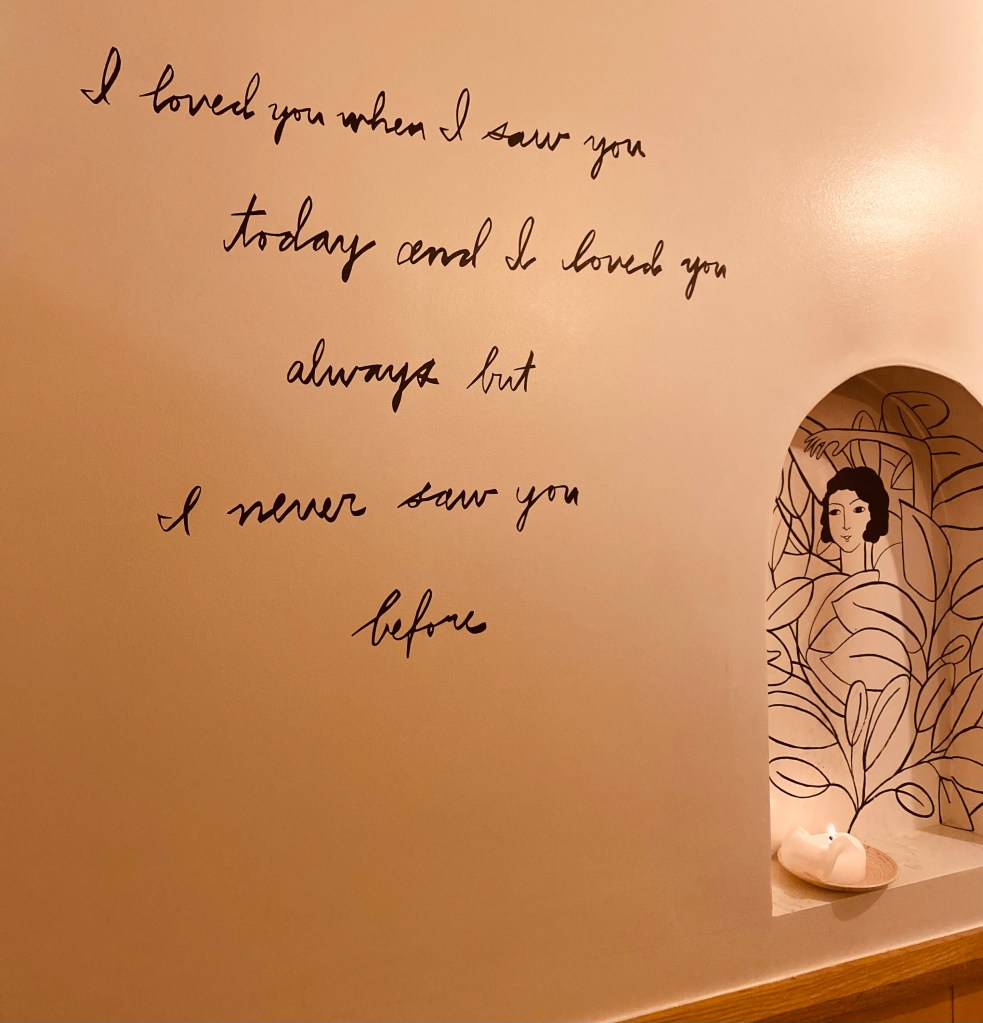 I loved you when I saw you
today and I loved you
always but
I never saw you
before